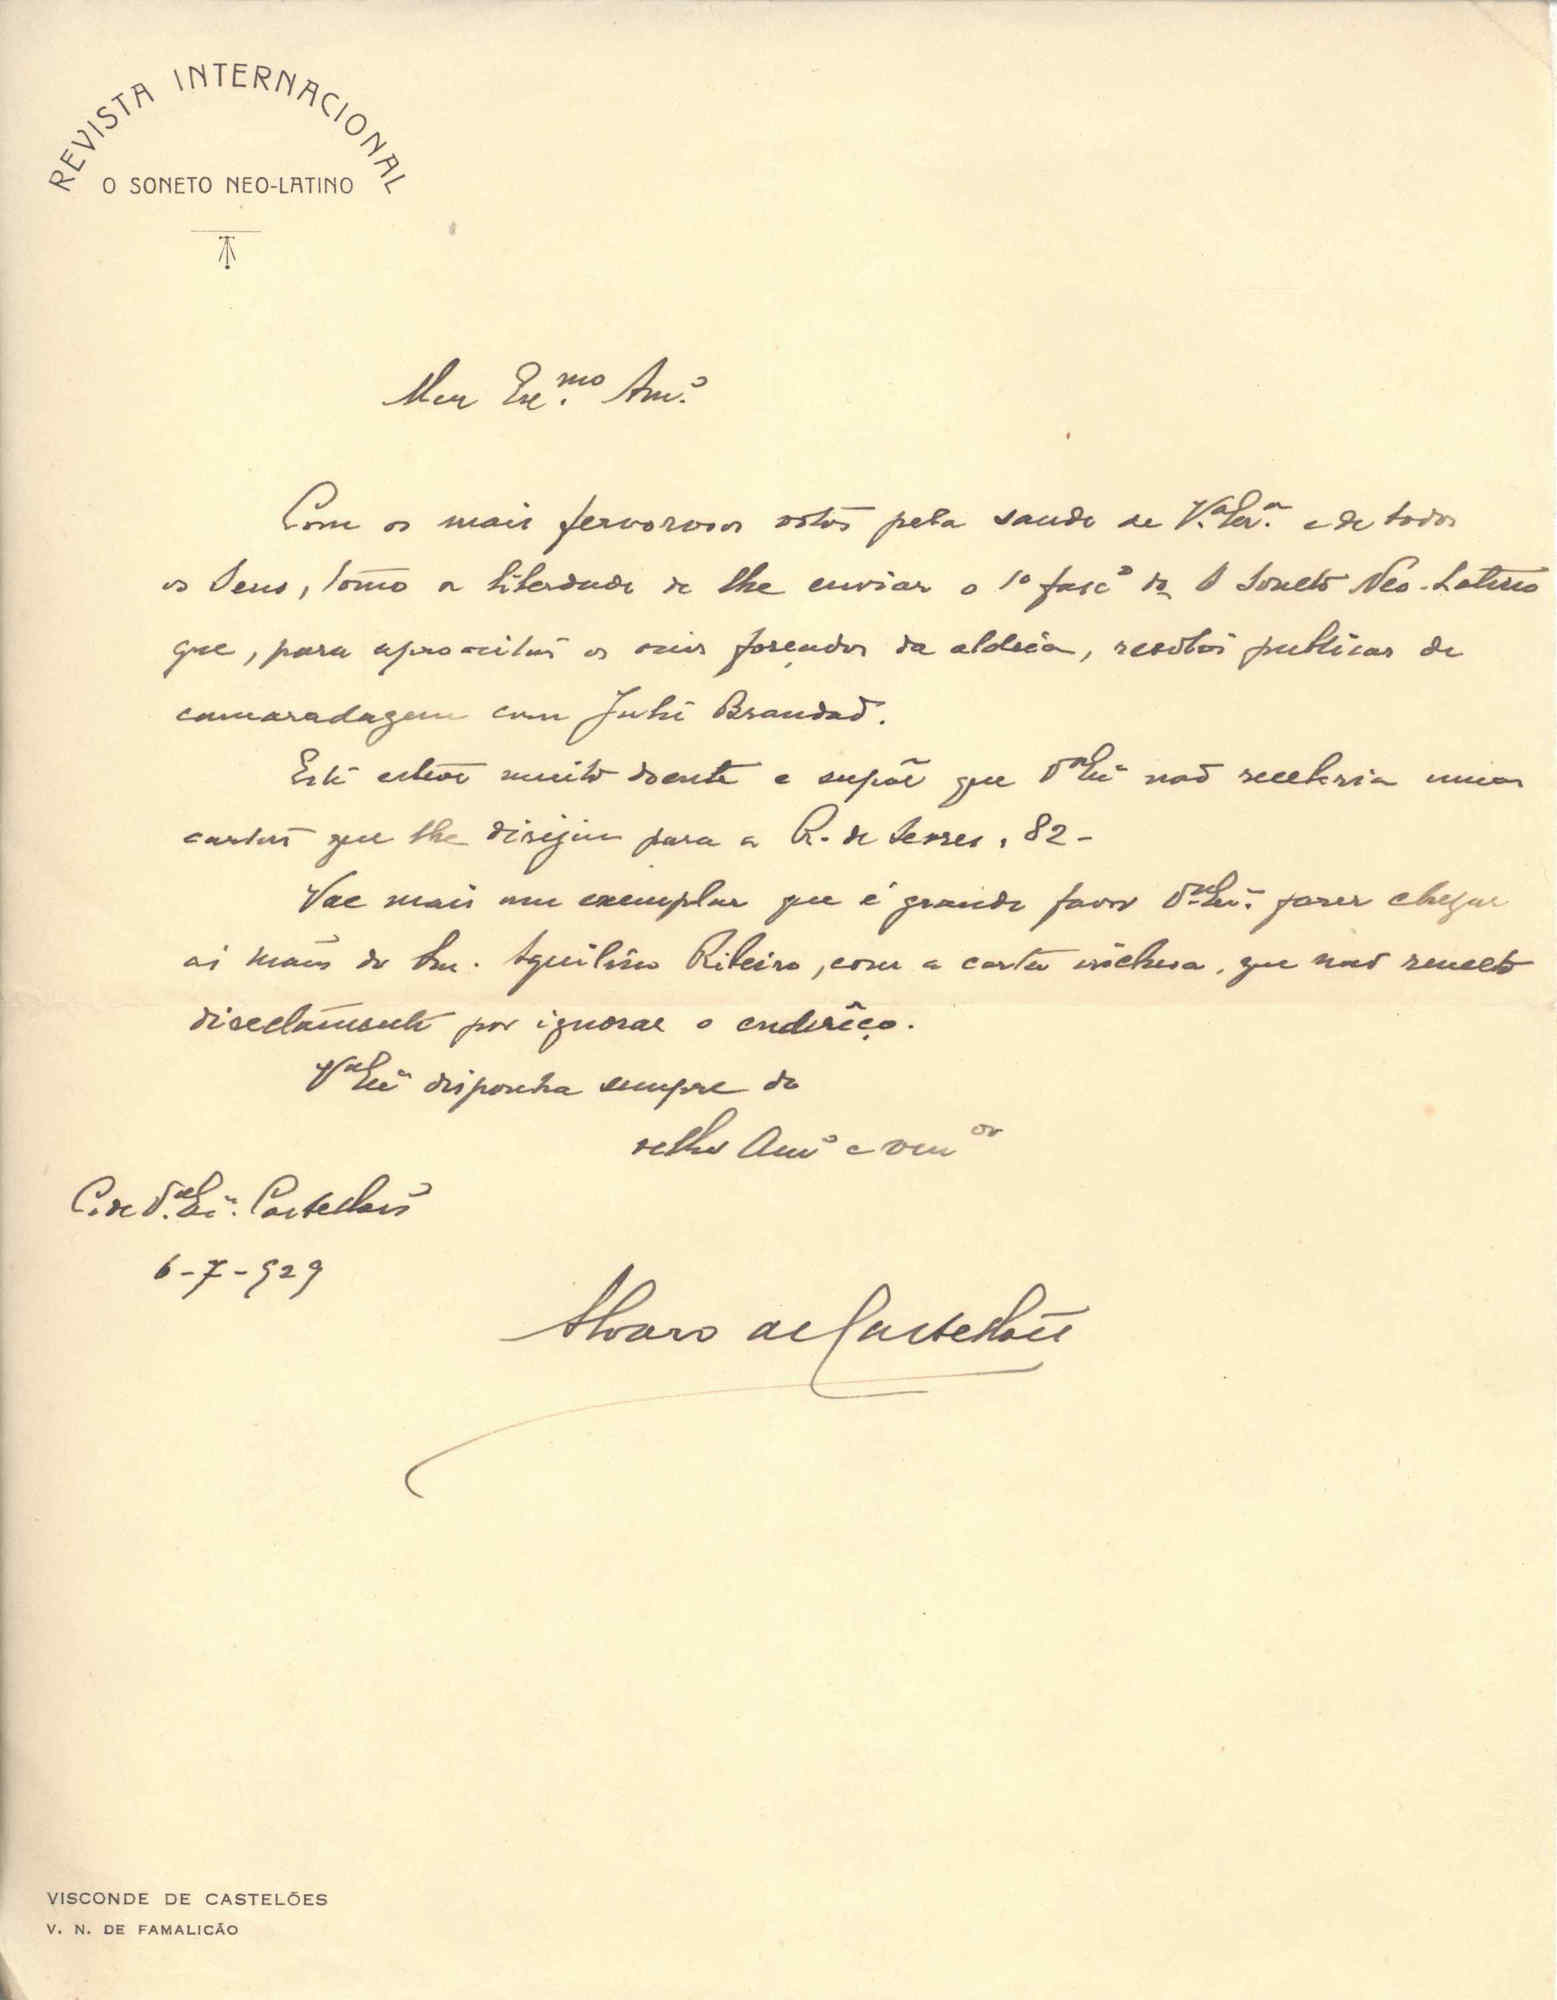 REVISTA INTERNACIONAL
O SONETO NEO-LATINO
Meu Exc.mo Am.º
Com os mais fervorosos votos pela saude de V.ª Ex.ª e de todos
os Seus, tómo a liberdade de lhe enviar o 1º fascº do O Soneto Neo-Latino
que, para aproveitar os ocios forçados da aldeia, resolvi publicar de
camaradagem com Julio Brandaõ.
Este esteve muito doente e supõe que V.ª Exª naõ receberia umas
cartas que lhe dirigiu para a R. de 82-
Vae mais um exemplar que é grande favor V.ª Exª fazer chegar
ás maõs do Snr. Aquilino Ribeiro, com a carta inclusa, que naõ remeto
directamente por ignorar o enderêço.
V.ª Exª disponha sempre do
velho Amº e ven.or
C. de V.ª Exª Castelloẽs
6-7-929
Alvaro de Castellões
VISCONDE DE CASTELÕES
V. N. DE FAMALICÃO